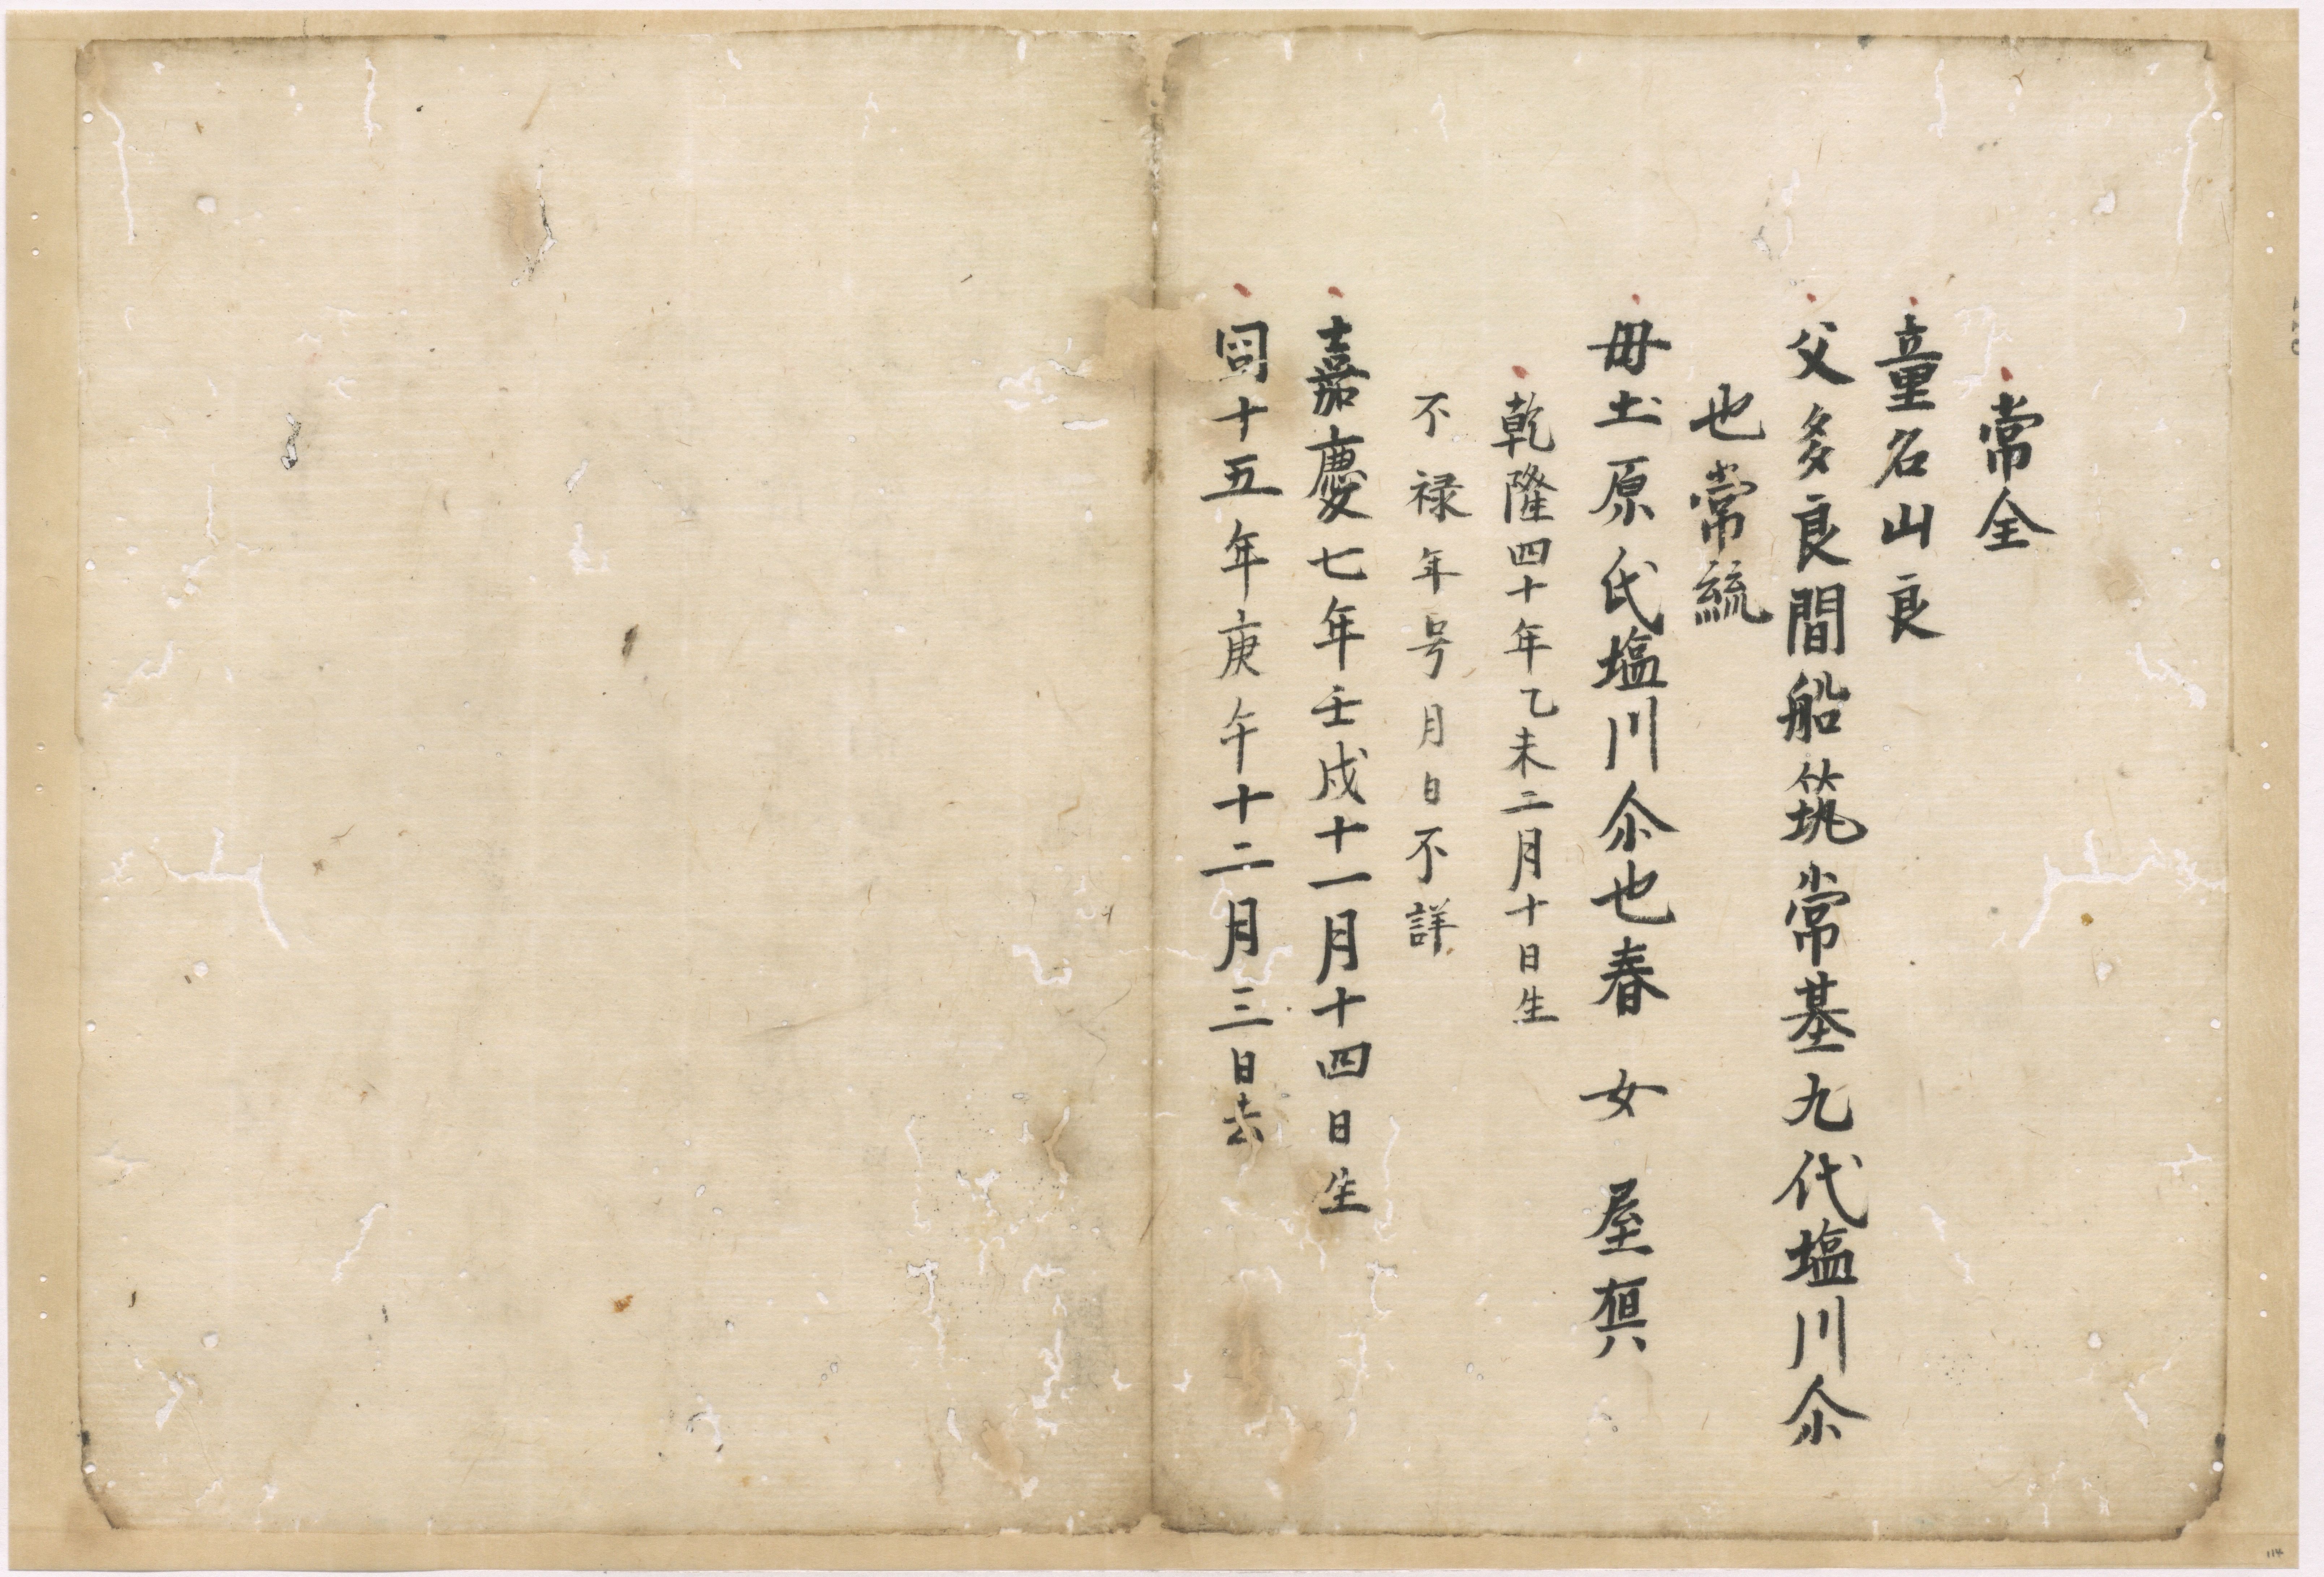 常全
童名山良
父多良間船筑常基九代塩川尒
也常統
母土原氏塩川尒也春女屋真
乾隆四十年乙未二月十日生
不禄年号月日不詳
嘉慶七年壬戌十一月十四日生
同十五年庚午十二月三日去
114